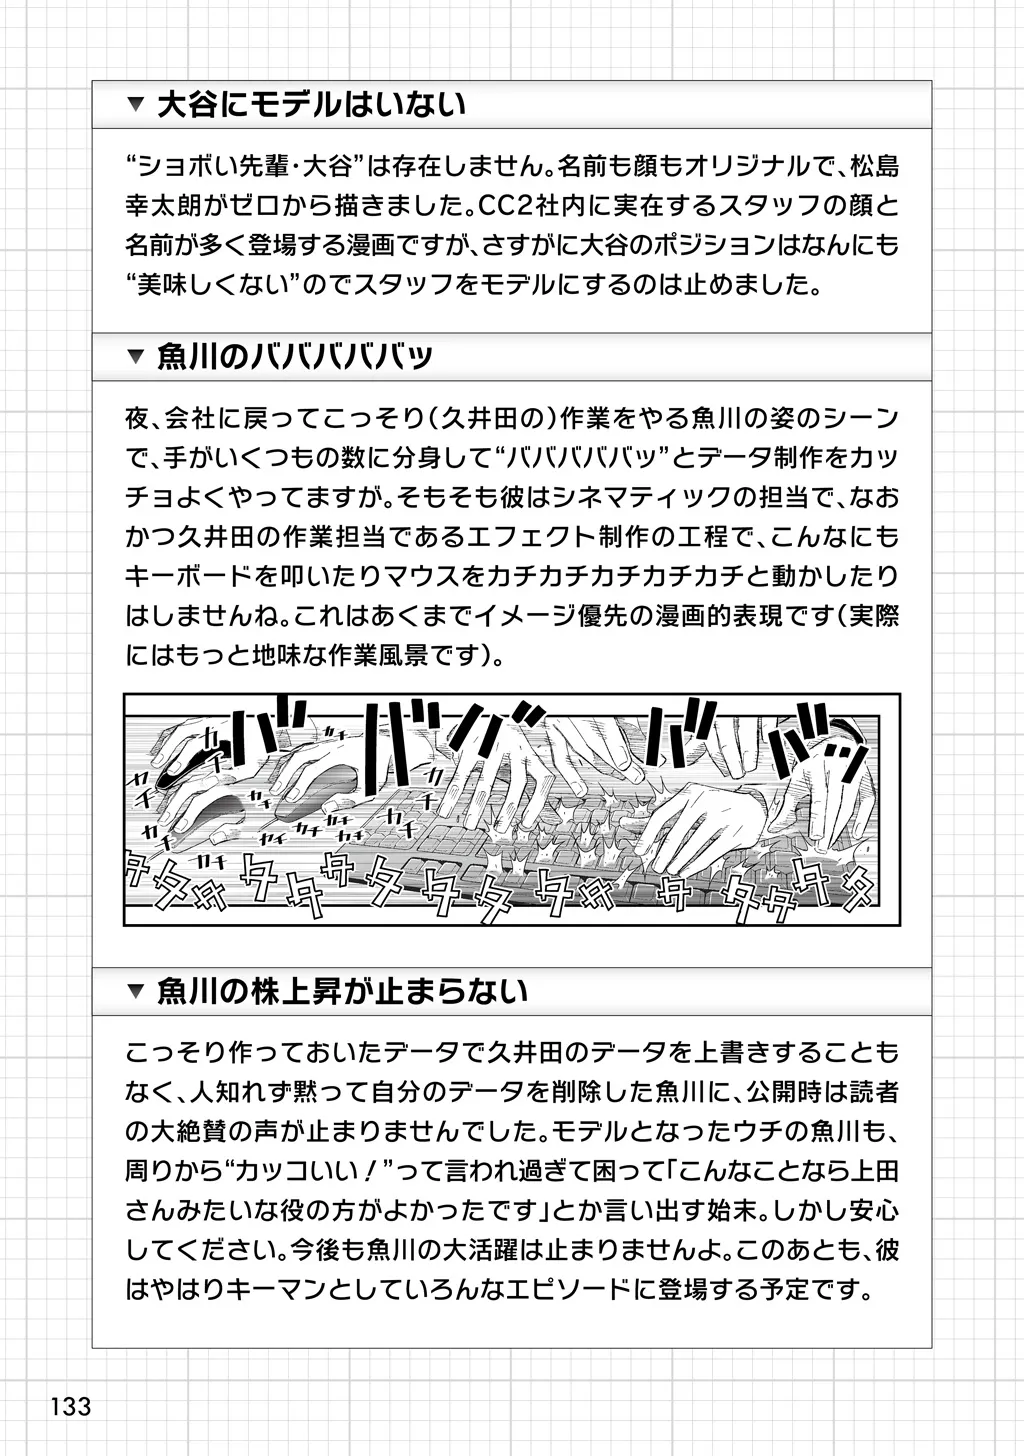 ▼ 大谷にモデルはいない
“ショボい先輩・大谷”は存在しません。名前も顔もオリジナルで、松島
幸太朗がゼロから描きました。CC2社内に実在するスタッフの顔と
名前が多く登場する漫画ですが、さすがに大谷のポジションはなんにも
“美味しくない”のでスタッフをモデルにするのは止めました。
▼ 魚川のバババババッ
夜、会社に戻ってこっそり（久井田の）作業をやる魚川の姿のシーン
で、手がいくつもの数に分身して“バババババッ”とデータ制作をカッ
チョよくやってますが。そもそも彼はシネマティックの担当で、なお
かつ久井田の作業担当であるエフェクト制作の工程で、こんなにも
キーボードを叩いたりマウスをカチカチカチカチカチと動かしたり
はしませんね。これはあくまでイメージ優先の漫画的表現です（実際
にはもっと地味な作業風景です）。
ババババババッ
カチ
カチ
カチ
カチ
カチ
カチ
カチ
カチ
カチ
カチ
カチ
カチ
タタタタタタタタタタタタタタタタタ
▼ 魚川の株上昇が止まらない
こっそり作っておいたデータで久井田のデータを上書きすることも
なく、人知れず黙って自分のデータを削除した魚川に、公開時は読者
の大絶賛の声が止まりませんでした。モデルとなったウチの魚川も、
周りから“カッコいい！”って言われ過ぎて困って「こんなことなら上田
さんみたいな役の方がよかったです」とか言い出す始末。しかし安心
してください。今後も魚川の大活躍は止まりませんよ。このあとも、彼
はやはりキーマンとしていろんなエピソードに登場する予定です。
133